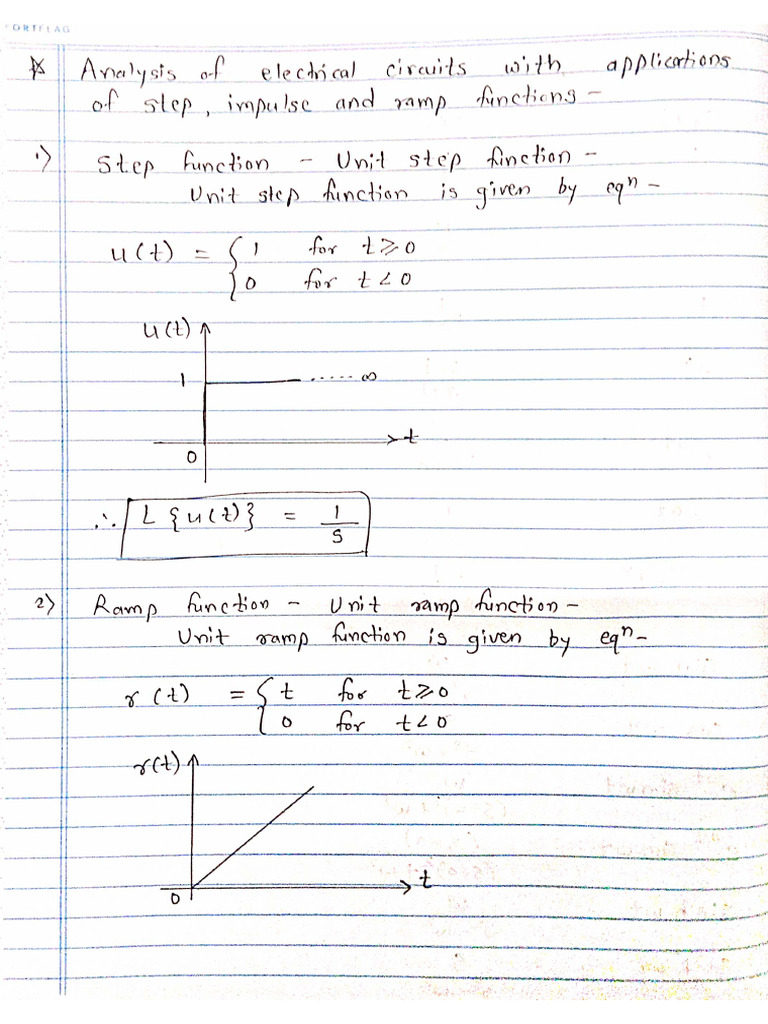 PORTFLAG
* Analysis of electrical circuits with applications
of step, impulse and ramp functions –
1) Step function – Unit step function –
Unit step function is given by eqⁿ –
u(t) = { 1 for t ≥ 0
0 for t < 0
u(t)
1 ..... ∞
t
0
∴ L {u(t)} = 1/s
2) Ramp function – Unit ramp function –
Unit ramp function is given by eqⁿ –
r(t) = { t for t ≥ 0
0 for t < 0
r(t)
t
0